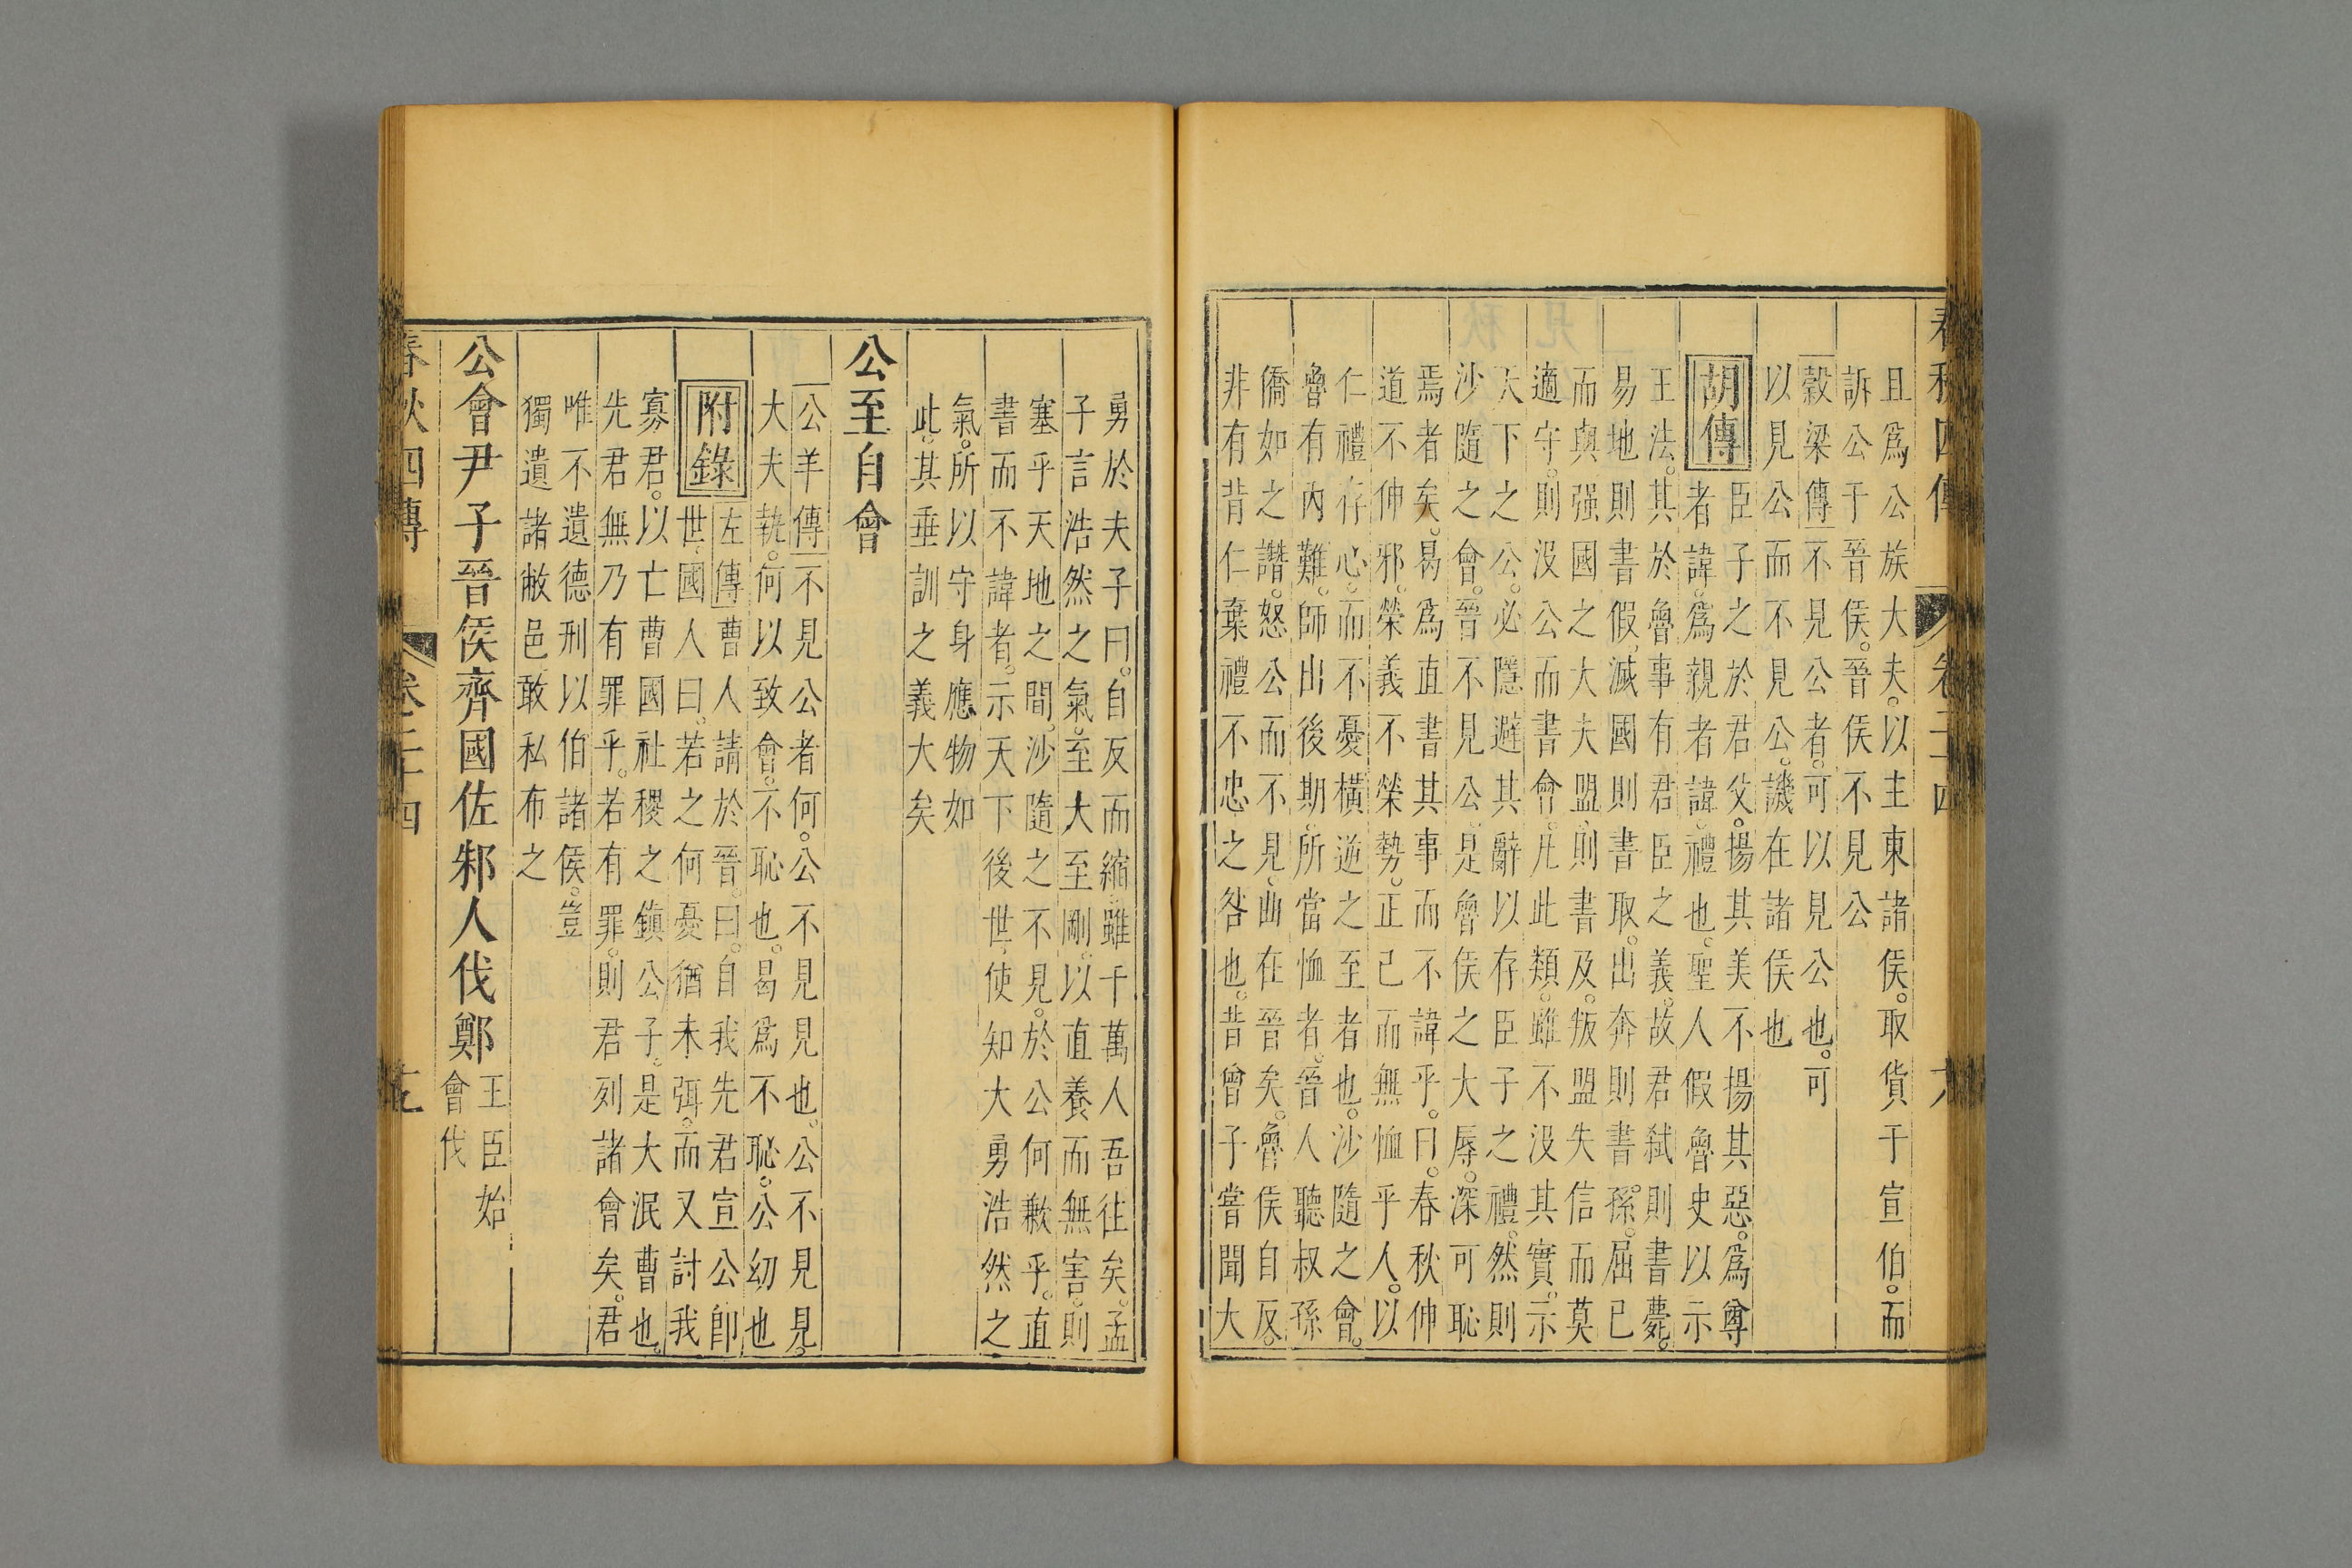 春秋四傳 卷二十四 六
且爲公族大夫。以主東諸侯。取貨于宣伯。而
訴公于晉侯。晉侯不見公
穀梁傳不見公者。可以見公也。可
以見公而不見公。譏在諸侯也
胡傳臣子之於君父。揚其美不揚其惡。爲尊
者諱。爲親者諱。禮也。聖人假魯史以示
王法。其於魯事有君臣之義。故君弒則書薨。
易地則書假。滅國則書取。出奔則書孫。屈已
而與强國之大夫盟。則書及。叛盟失信而莫
適守。則沒公而書會。凡此類。雖不沒其實。示
天下之公。必隱避其辭以存臣子之禮。然則
沙隨之會。晉不見公。是魯侯之大辱。深可恥
焉者矣。曷爲直書其事而不諱乎。曰。春秋伸
道不伸邪。榮義不榮勢。正己而無恤乎人。以
仁禮存心。而不憂橫逆之至者也。沙隨之會。
魯有內難。師出後期。所當恤者。晉人聽叔孫
僑如之譖。怒公而不見。曲在晉矣。魯侯自反。
非有背仁棄禮不忠之咎也。昔曾子嘗聞大
勇於夫子曰。自反而縮。雖千萬人吾往矣。孟
子言浩然之氣。至大至剛。以直養而無害。則
塞乎天地之間。沙隨之不見。於公何歉乎。直
書而不諱者。示天下後世。使知大勇浩然之
氣。所以守身應物如
此。其垂訓之義大矣
公至自會
公羊傳不見公者何。公不見見也。公不見見。
大夫執。何以致會。不恥也。曷爲不恥。公幼也
附錄左傳曹人請於晉。曰。自我先君宣公卽
世。國人曰。若之何憂猶未弭。而又討我
寡君。以亡曹國社稷之鎮公子。是大泯曹也。
先君無乃有罪乎。若有罪。則君列諸會矣。君
唯不遺德刑以伯諸侯。豈
獨遺諸敝邑敢私布之
公會尹子晉侯齊國佐邾人伐鄭王臣始
會伐
春秋四傳 卷二十四 七